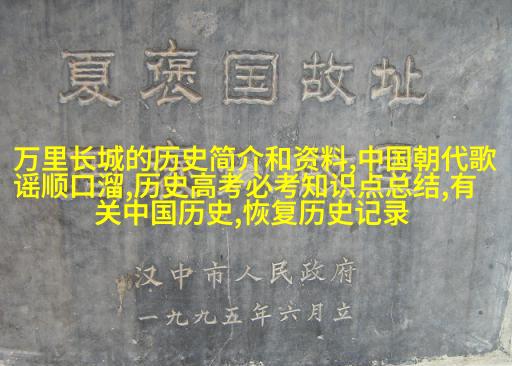 夏褒国故址
万里长城的历史简介和资料,中国朝代歌
谣顺口溜,历史高考必考知识点总结,有
关中国历史,恢复历史记录
汉中市人民政府
一九九五年六月立